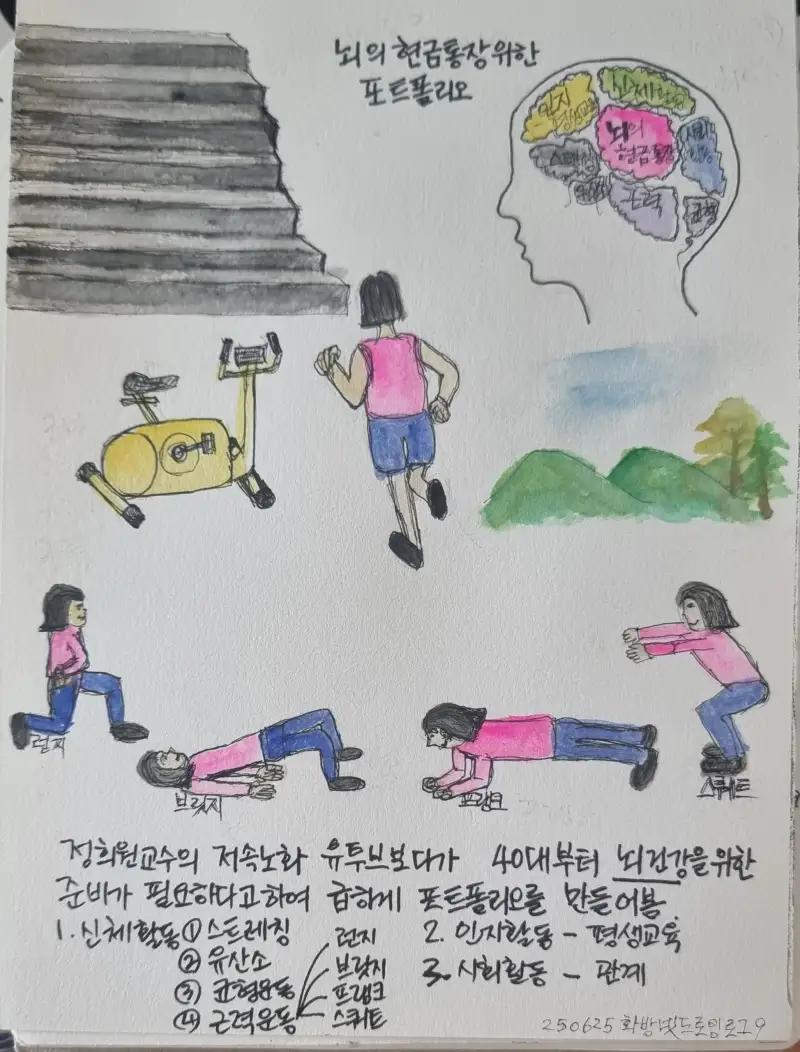 뇌의 현금통장 위한
포트폴리오
인지
평생교육
신체활동
뇌의
현금통장
사회
활동
스트레칭
근력
균형
런지
브릿지
프랭크
스퀘트
정희원교수의 저속노화 유투브보다가 40대부터 뇌건강을 위한
준비가 필요하다고하여 급하게 포트폴리오를 만들어봄.
1. 신체활동 ① 스트레칭 런지 2. 인지활동 - 평생교육
② 유산소 브릿지 3. 사회활동 - 관계
③ 균형운동 프랭크
④ 근력운동 스퀘트
250625 화방넷드로잉로그9